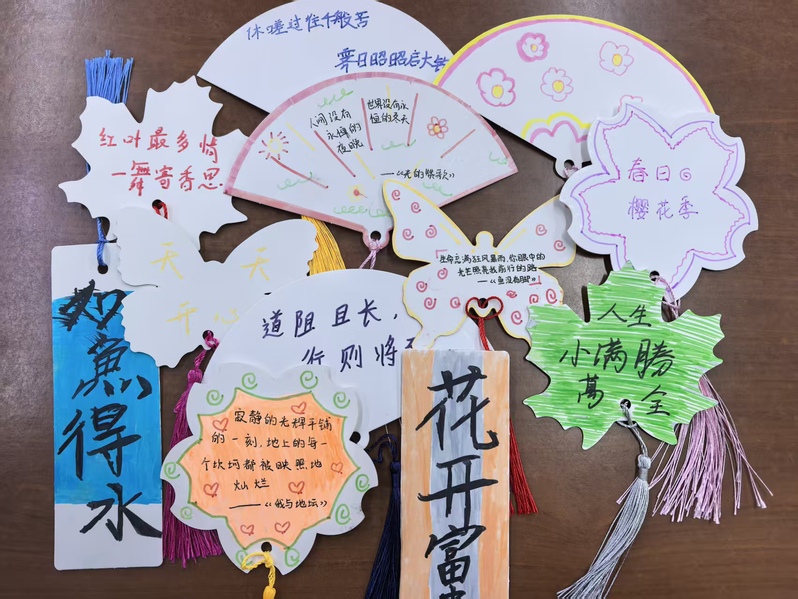 休嗟过往千般苦
霁日昭昭启大
红叶最多情
一舞寄香思
人间没有
永恒的
夜晚
世界没有永
恒的冬天
——《光的赞歌》
春日
樱花季
天 天
开 心
生命充满狂风暴雨,你眼中的
光芒照亮我前行的路
——《鱼没有脚》
人生
小满勝
萬全
道阻且长,
行则将
如魚得水
寂静的光辉平铺
的一刻,地上的每一
个坎坷都被映照地
灿烂
——《我与地坛》
花开富